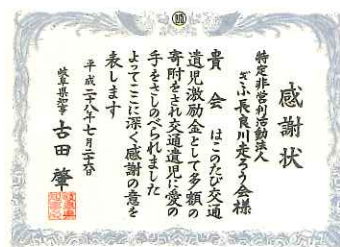 感謝状
特定非営利活動法人
ぎふ長良川走ろう会様
貴会はこのたび交通
遺児激励金として多額の
寄附をされ交通遺児に愛の
手をさしのべられました
よってここに深く感謝の意を
表します
平成二十八年七月二十六日
岐阜県知事 古田肇